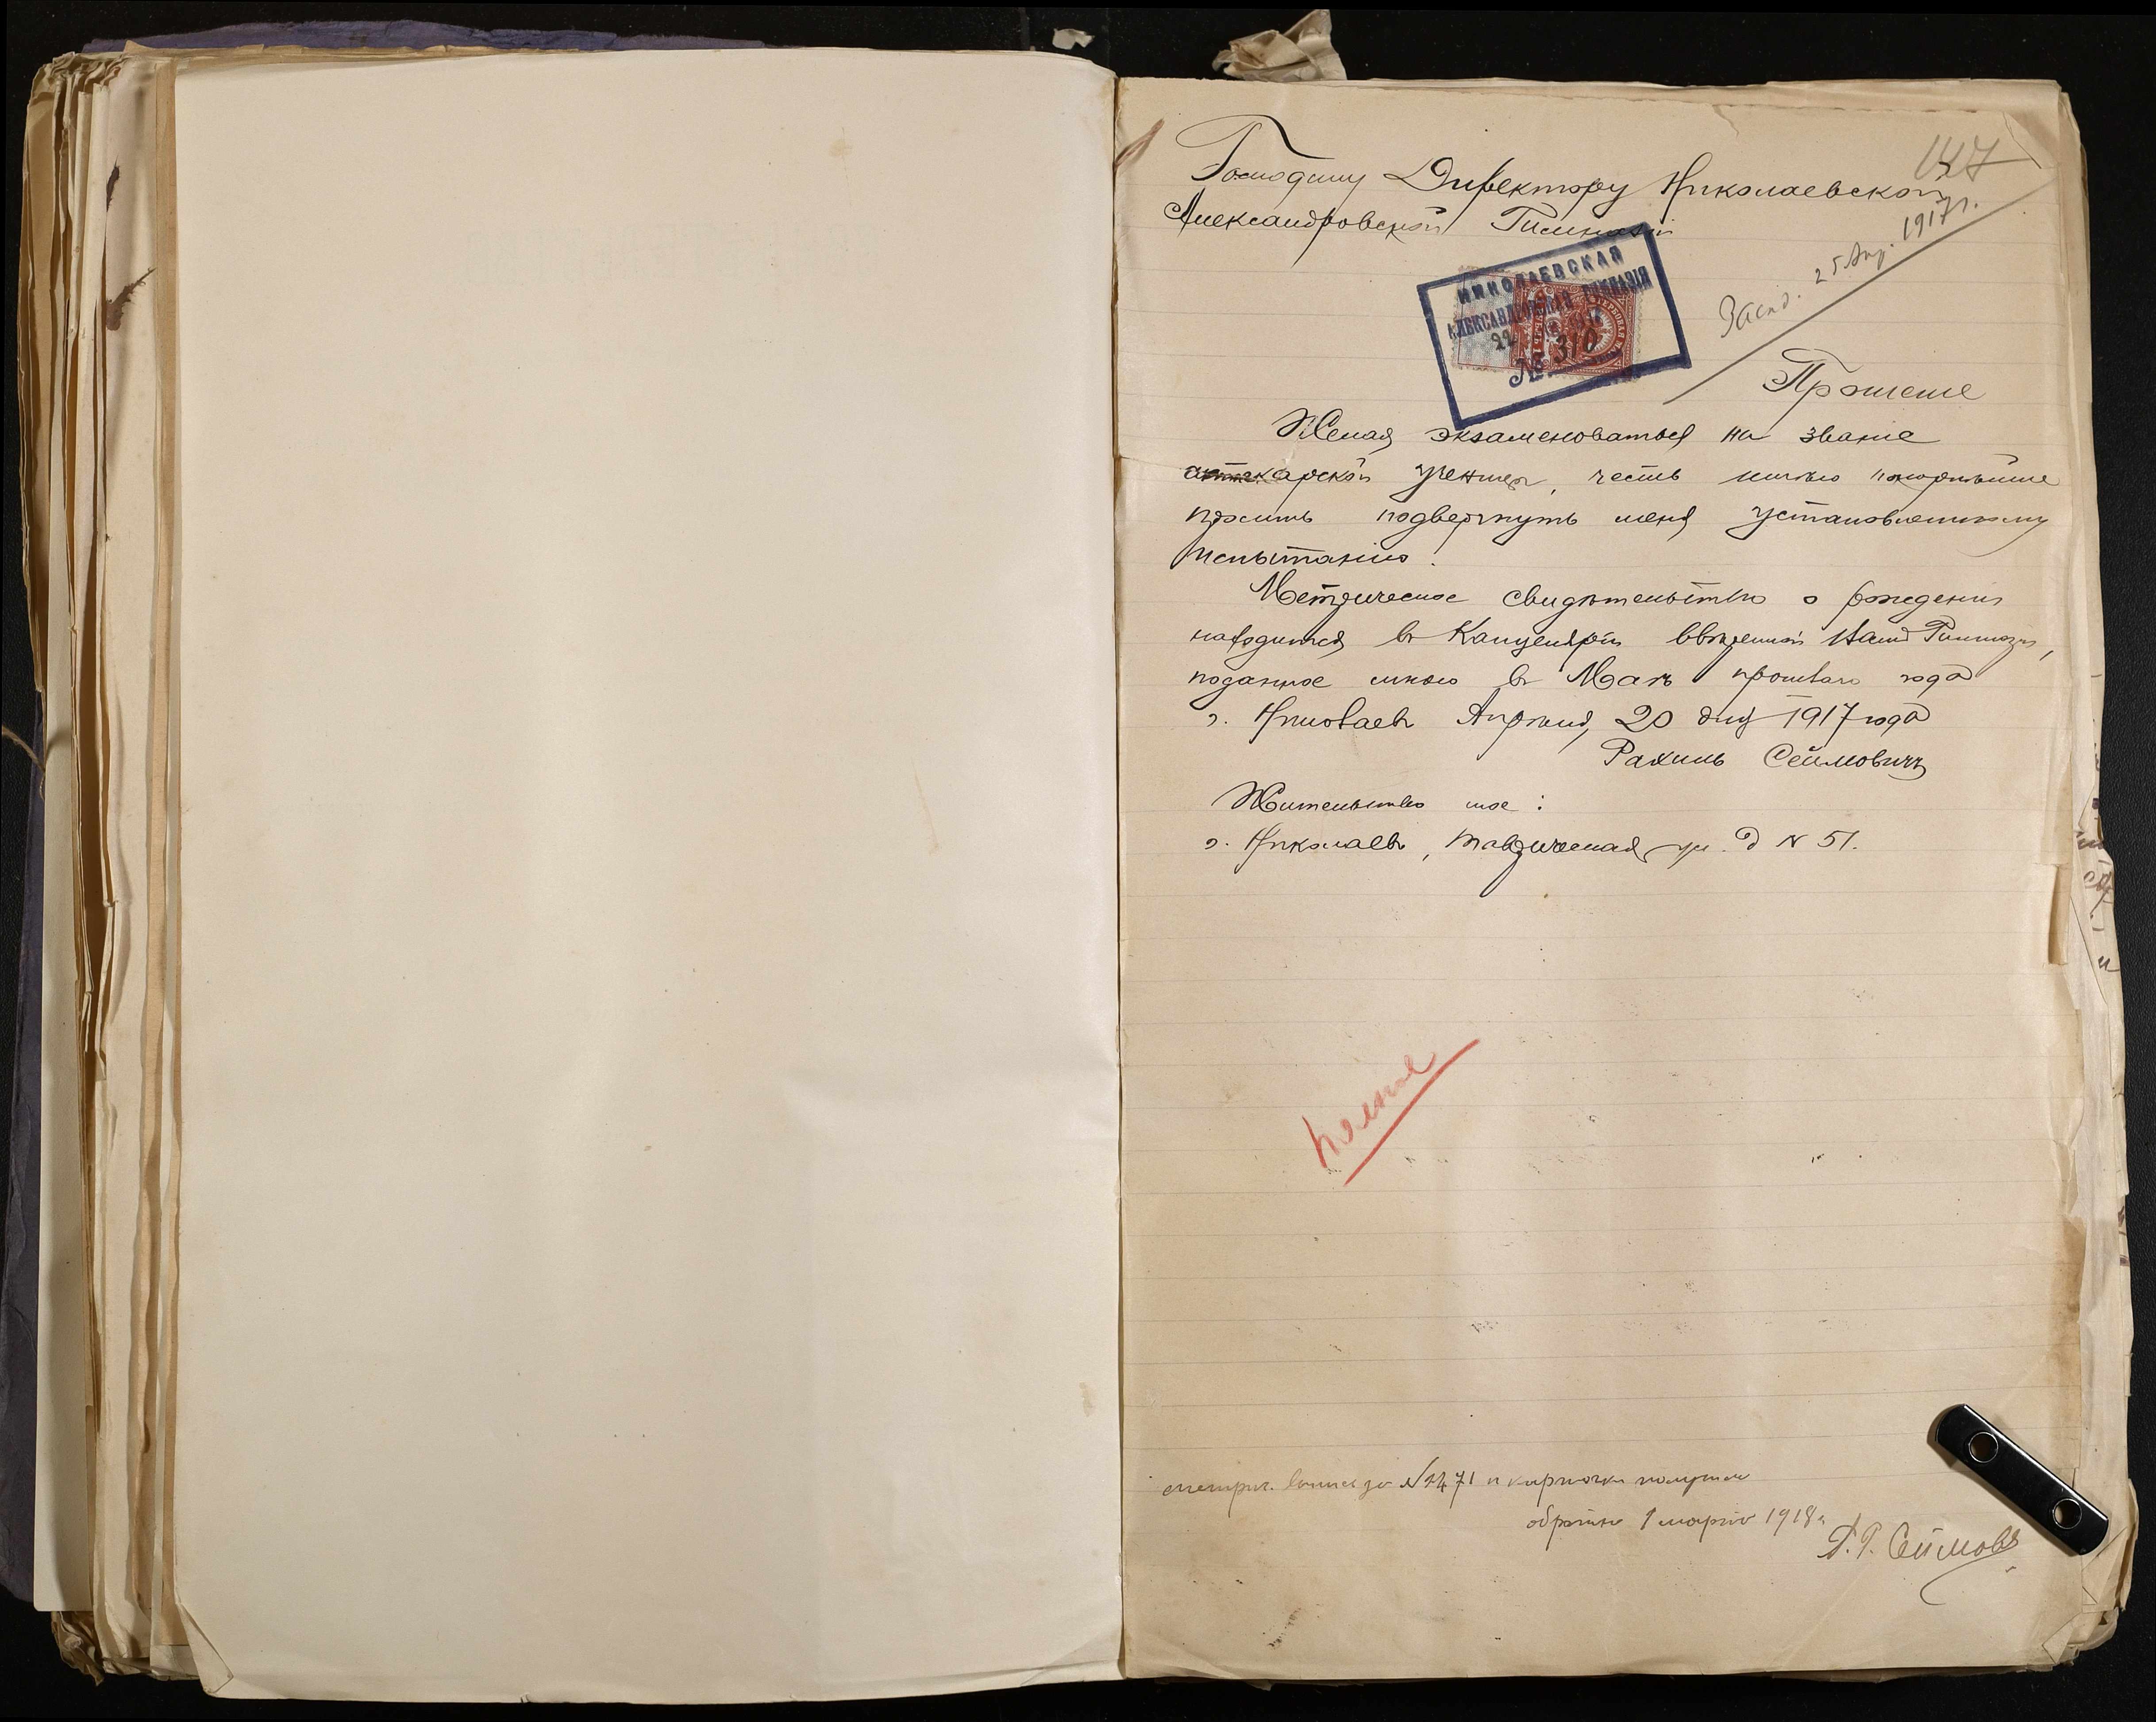 147
Господину Директору Николаевской
Александровской Гимназіи
Засѣд. 25 Апр. 1917 г.
НИКОЛАЕВСКАЯ
АЛЕКСАНДРОВСКАЯ ГИМНАЗІЯ
22
№ 370
Прошеніе
Желая экзаменоваться на званіе
аптекарской ученицы, честь имѣю покорнѣйше
просить подвергнуть меня установленному
испытанію.
Метрическое свидѣтельство о рожденіи
находится въ Канцеляріи ввѣренной Вамъ Гимназіи,
поданное мною въ Маѣ прошлаго года
г. Николаевъ Апрѣля, 20 дня 1917 года
Рахиль Сеймовичъ
Жительство мое:
г. Николаевъ, Таврическая ул. д N 51.
метрич. выпись за №2471 и карточки получила
обратно 1 марта 1918 г.
Р. Сеймов